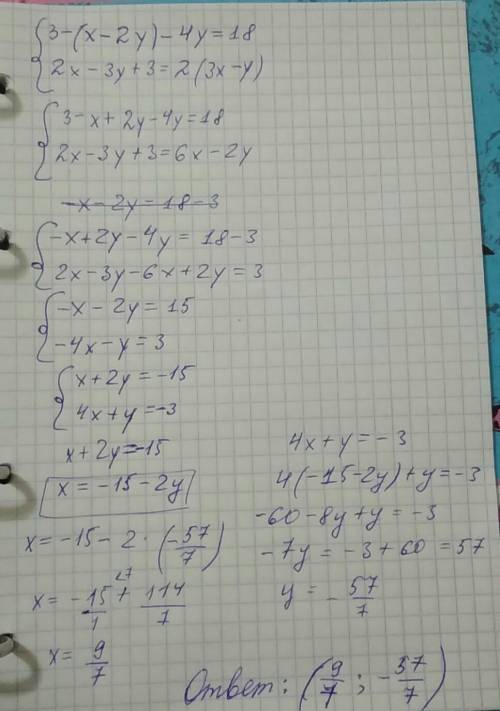 3-(x-2y)-4y=18
2x-3y+3=2(3x-y)
3-x+2y-4y=18
2x-3y+3=6x-2y
-x-2y=18-3
-x+2y-4y=18-3
2x-3y-6x+2y=3
-x-2y=15
-4x-y=3
x+2y=-15
4x+y=-3
x+2y=-15
x=-15-2y
x=-15-2·(-57/7)
x=-15/1+114/7
x=9/7
4x+y=-3
4(-15-2y)+y=-3
-60-8y+y=-3
-7y=-3+60=57
y=-57/7
Ответ: (9/7; -57/7)